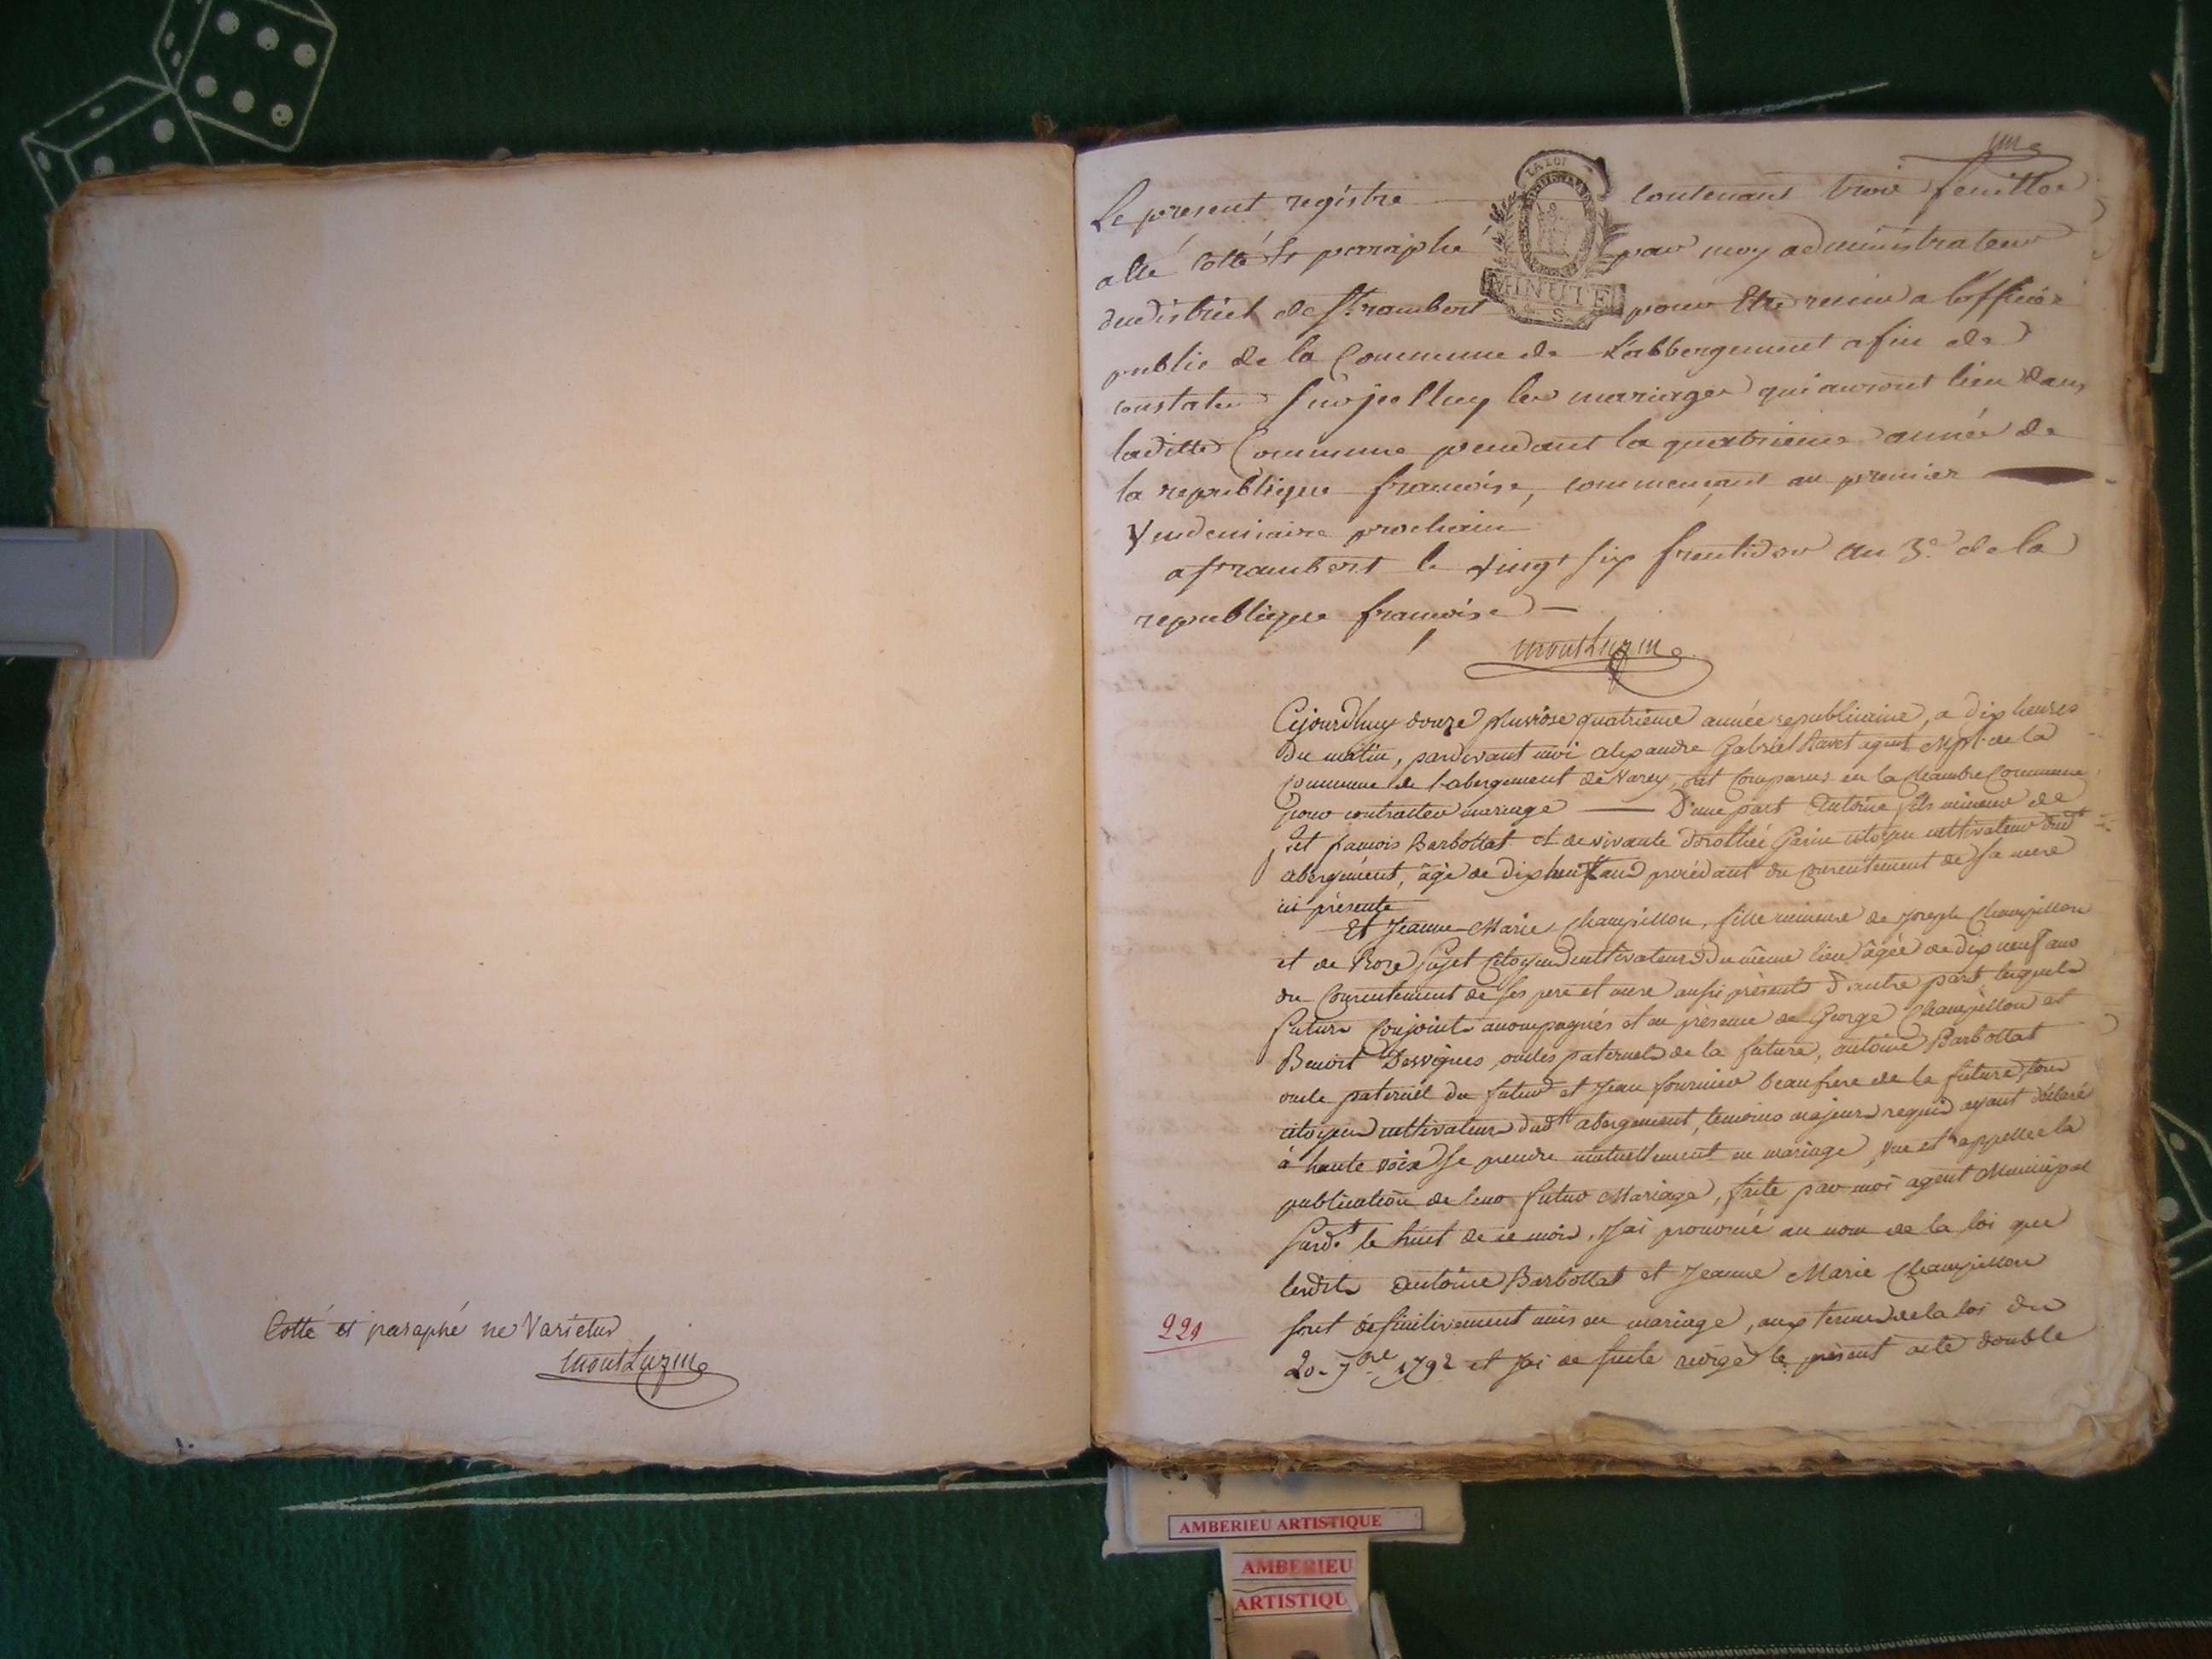 Cotté et paraphé ne Varietur
Montluzin
une
LA LOI
MINUTE
4 S.
Le present registre contenant trois feuilles
a été cotté & paraphé par moy administrateur
du district de St rambert pour etre remis a l'officier
public de la Commune de L'abbergement afin de
constater sur jcelluy les mariages qui auront lieu dans
laditte Commune pendant la quatrieme année de
la republique francoise, commencant au premier
Vendemiaire prochain
a St rambert le vingt six fructidor an 3e. de la
republique francoise
Montluzin
Cejourdhuy douze pluviose quatrième année republicaine, a dix heures
du matin, pardevant moi alexandre Gabriel Ravet agent Mpl. de la
commune de l'abergement de Varey, ont comparus en la chambre Commune
pour contracter mariage D'une part Antoine fils mineur de
françois Barbollat et de vivante dorothée Garin citoyen cultivateur dudt
abergement, âgé de dix huit ans procédant du consentement de sa mere
ici présente
Et Jeanne Marie Champillon, fille mineure de Joseph Champillon
et de Rose Pujet Citoyens cultivateurs du même lieu âgée de dix neuf ans
du Consentement de ses pere et mere aussi présents d'autre part, lesquels
futurs Conjoints accompagnés et en présence de George Champillon et
Benoit Desvignes, oncles paternels de la future, antoine Barbollat
oncle paternel du futur et Jean fournier beaufrere de la future, tous
citoyens cultivateurs dudt abergement, temoins majeurs requis ayant déclaré
à haute voix se prendre mutuellement en mariage, vue et rappellee la
publication de leur futur Mariage, faite par moi agent Municipal
susdt. le huit de ce mois, J'ai prononcé au nom de la loi que
lesdits Antoine Barbollat et Jeanne Marie Champillon
sont définitivement unis en mariage, aux termes de la loi du
20. 7bre 1792 et j'ai de suite rédigé le présent acte double
221
AMBERIEU ARTISTIQUE
AMBERIEU
ARTISTIQU